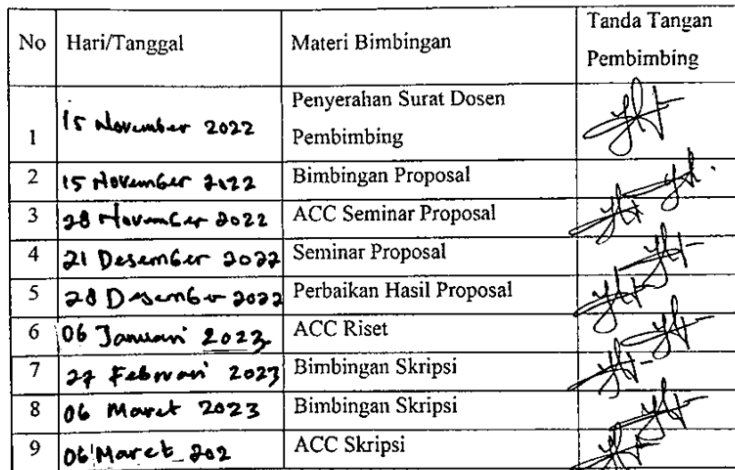 No Hari/Tanggal Materi Bimbingan Tanda Tangan
Pembimbing
1 15 November 2022 Penyerahan Surat Dosen
Pembimbing
2 15 November 2022 Bimbingan Proposal
3 28 November 2022 ACC Seminar Proposal
4 21 Desember 2022 Seminar Proposal
5 28 Desember 2022 Perbaikan Hasil Proposal
6 06 Januari 2023 ACC Riset
7 27 Februari 2023 Bimbingan Skripsi
8 06 Maret 2023 Bimbingan Skripsi
9 06 Maret 202 ACC Skripsi